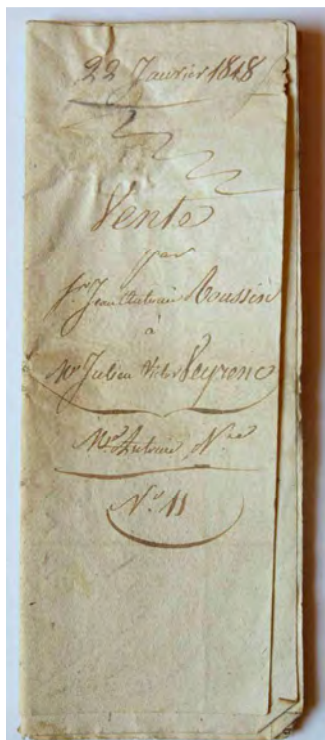 22 Janvier 1818
Vente
par
Sr. Jean Antoine Roussin
à
Mr Julien Victor Veyrenc
Mre Antoine Nre
N° 11